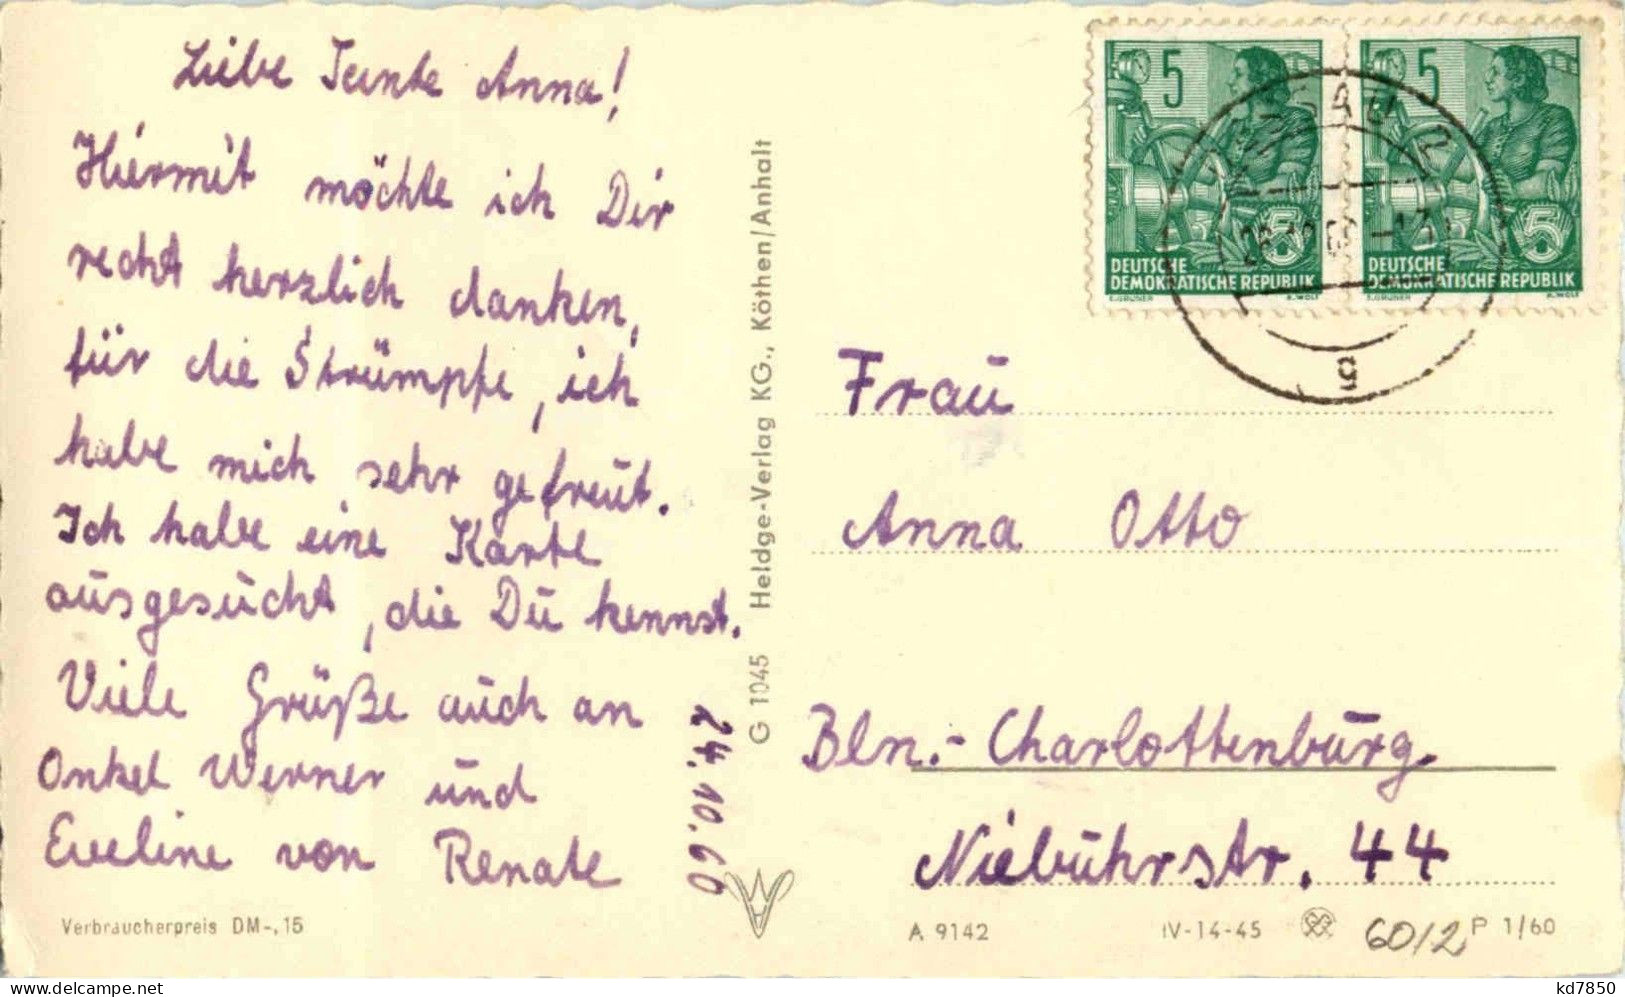 Liebe Tante Anna!
Hiermit möchte ich Dir
recht herzlich danken,
für die Strümpfe, ich
habe mich sehr gefreut.
Ich habe eine Karte
ausgesucht, die Du kennst.
Viele Grüße auch an
Onkel Werner und
Eveline von Renate
24.10.60
Verbraucherpreis DM-,15
G 1045 Heldge-Verlag KG., Köthen/Anhalt
5
DEUTSCHE
DEMOKRATISCHE REPUBLIK
E.GRUNER R.WOLF
5
DEUTSCHE
DEMOKRATISCHE REPUBLIK
E.GRUNER R.WOLF
g
Frau
Anna Otto
Bln.-Charlottenburg
Niebuhrstr. 44
A 9142 IV-14-45 6012 P 1/60
delcampe.net
kd7850